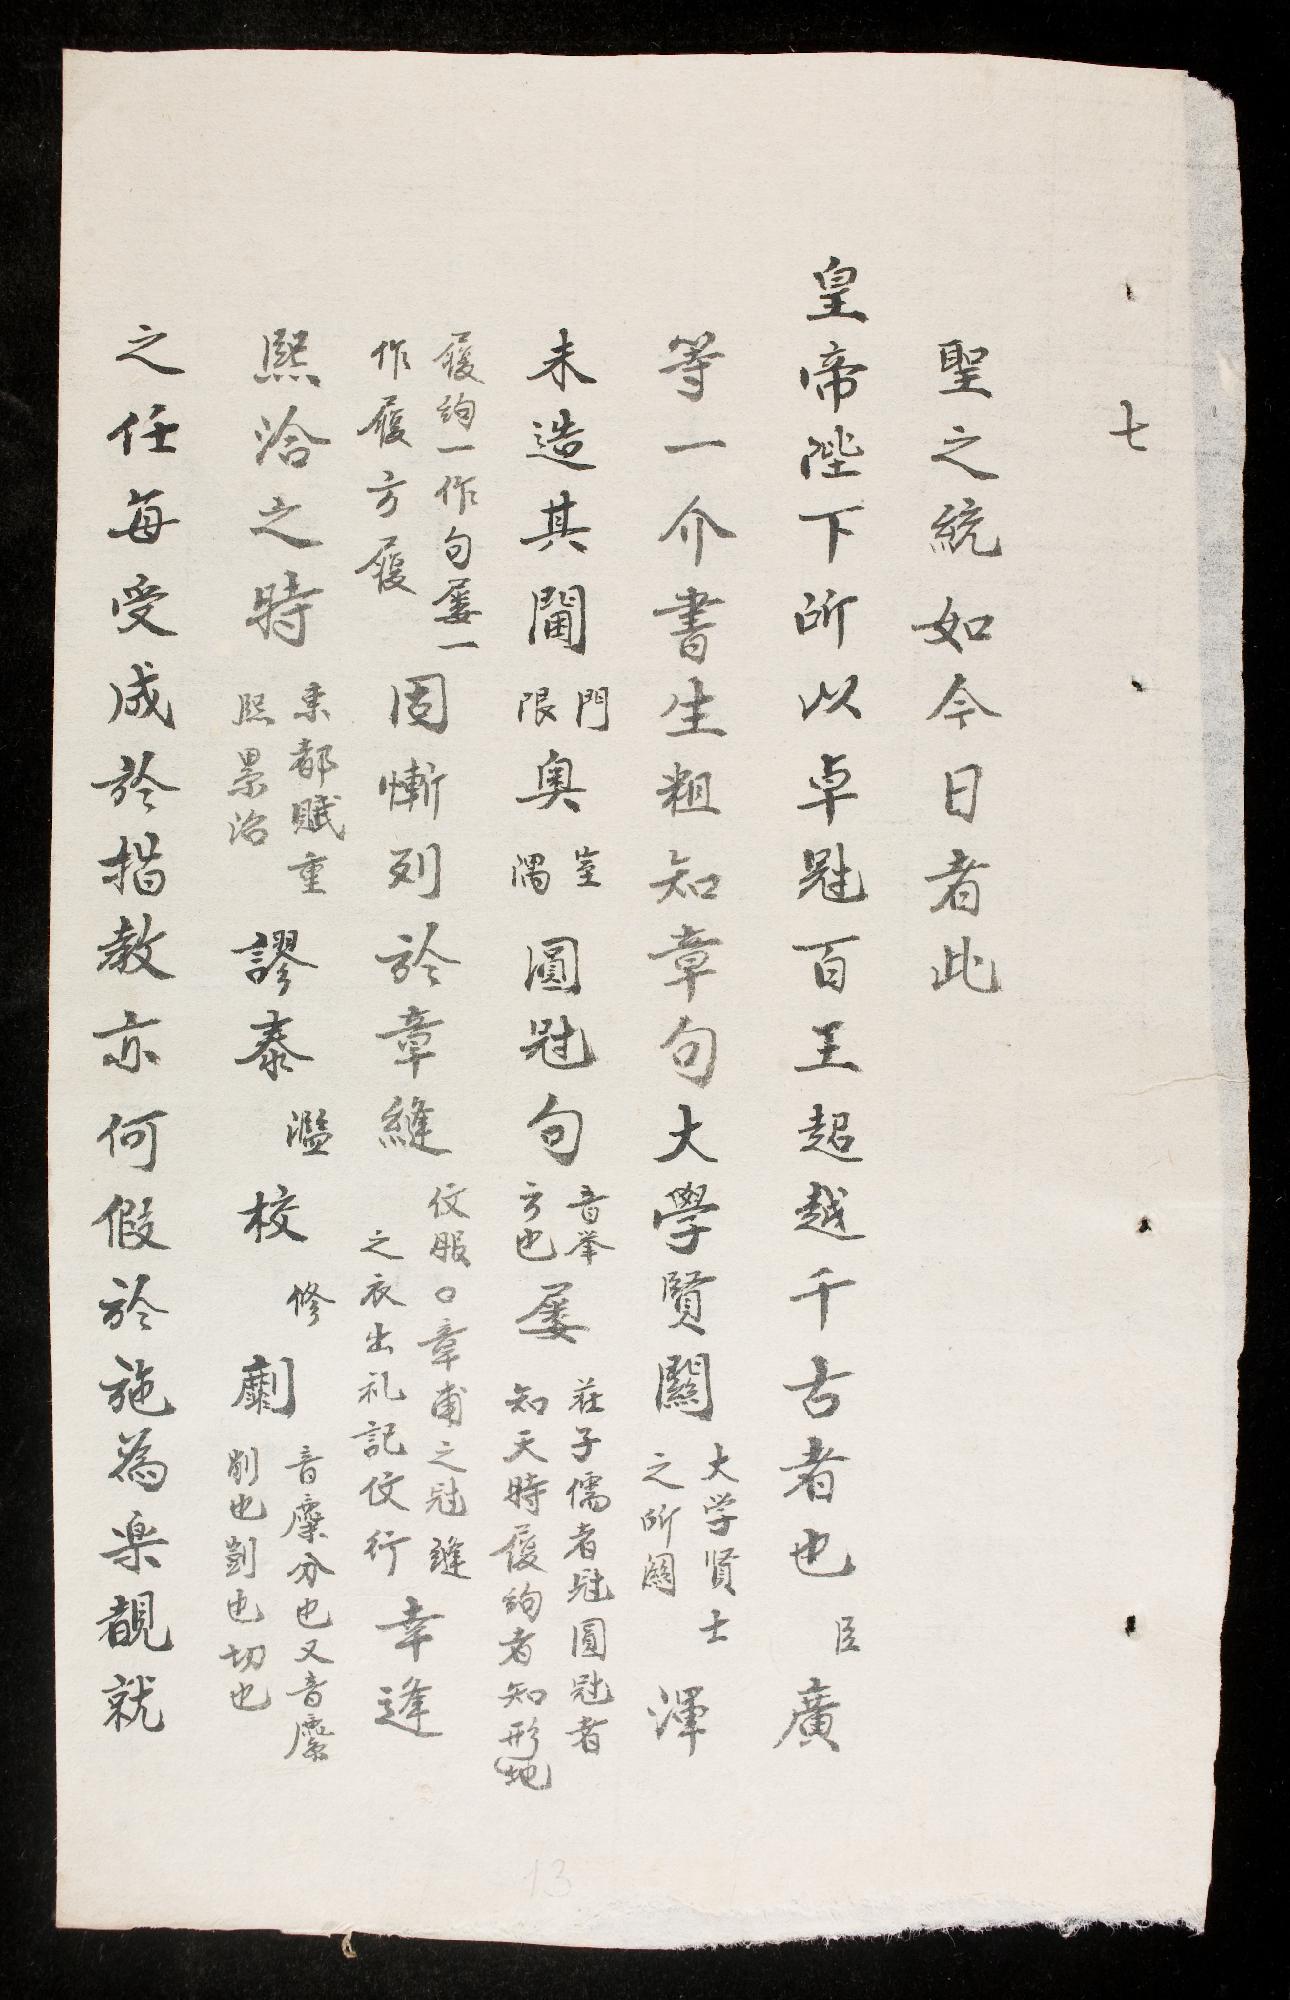 七
聖之統如今日者此
皇帝陛下所以卓冠百王超越千古者也臣廣
等一介書生粗知章句大學賢關大学賢士之所関渾
未造其閫門限奥室隅圓冠句音挙方也屨荘子儒者冠圓冠者知天時履絇者知形地
履絇一作句屨一作履方履固慚列於章縫仗服〇章甫之冠縫之衣出礼記仗行幸逢
熈洽之時東都賦重熈累洽謬忝濫校修劘音糜分也又音縻削也剴也切也
之任每受成於措教亦何假於施為楽覩就
13